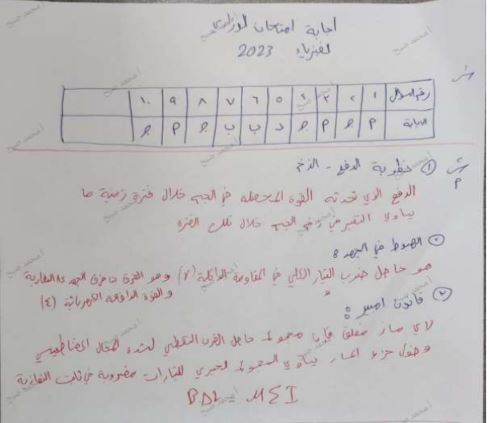 اجابة امتحان الوزاري
لفيزياء 2023
رقم السؤال ١ ٢ ٣ ٤ ٥ ٦ ٧ ٨ ٩ ١٠
الاجابة
① نظرية الدفع - الزخم
الدفع الذي تحدثه القوة المحصلة في الجسم خلال فترة زمنية ما
يساوي التغير في زخم الجسم خلال تلك الفترة
الهبوط في الجهد :
هو حاصل ضرب التيار الكلي في المقاومة الداخلية (r) وهو الفرق ما بين الجهد للبطارية
والقوة الدافعة الكهربائية (ε)
قانون امبير :
لاي مسار مغلق فان مجموع حاصل الضرب النقطي لشدة المجال المغناطيسي
وطول جزء المسار يساوي المجموع الجبري للتيارات مضروبة في ثابت النفاذية
B ΔL = μ Σ I